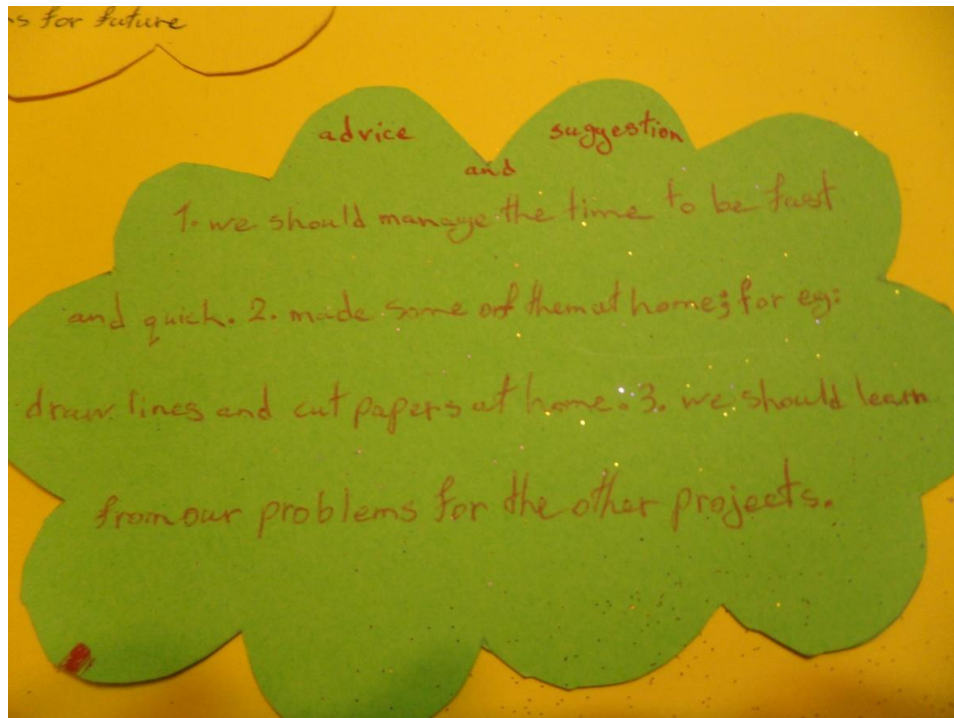 s for future
advice and suggestion
1. we should manage the time to be fast
and quick. 2. made some of them at home; for eg:
draw lines and cut papers at home. 3. we should learn
from our problems for the other projects.